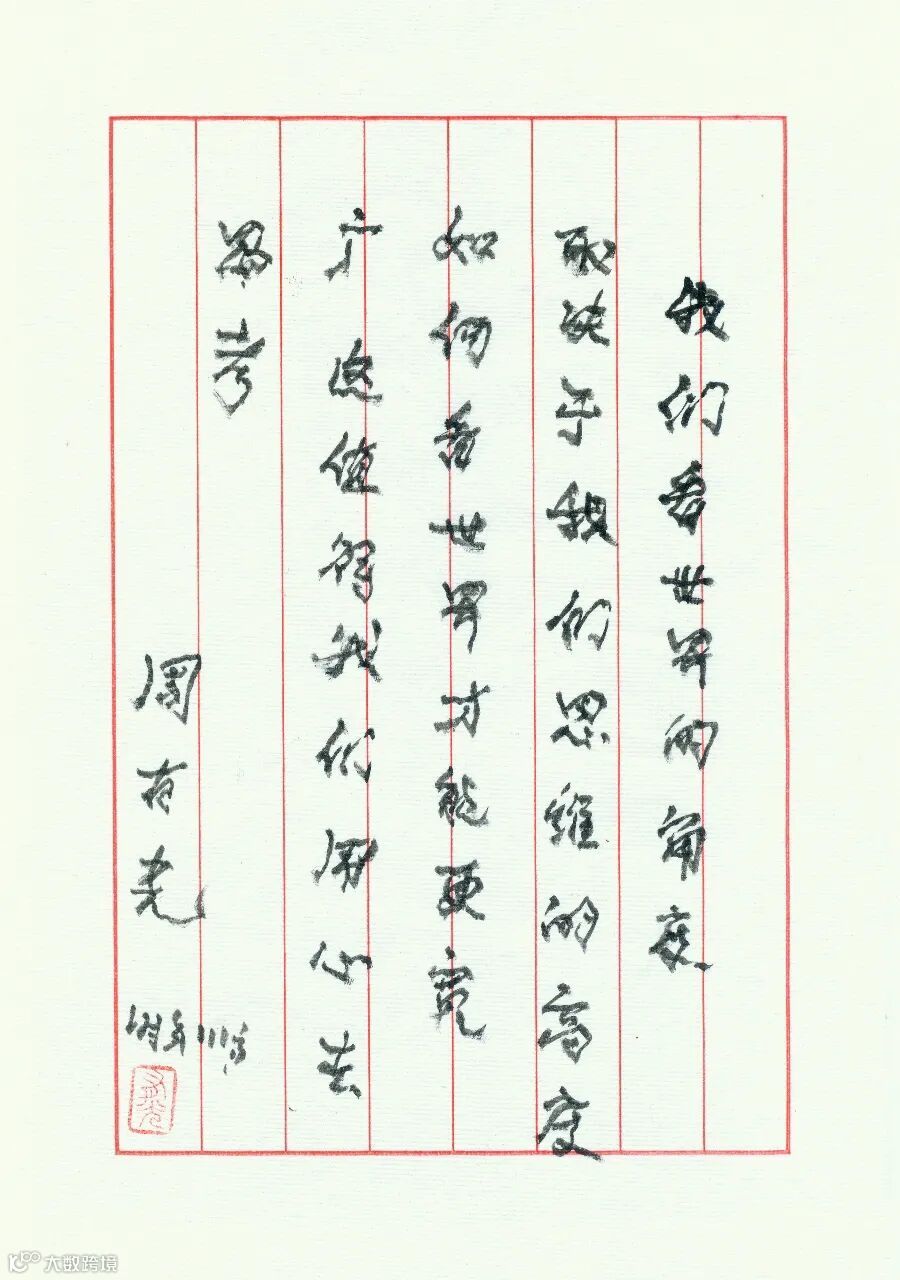 我们看世界的角度
取决于我们思维的高度
如何看世界才能更宽
广 这值得我们用心去
思考
周有光
时年111岁
有光
大数跨境